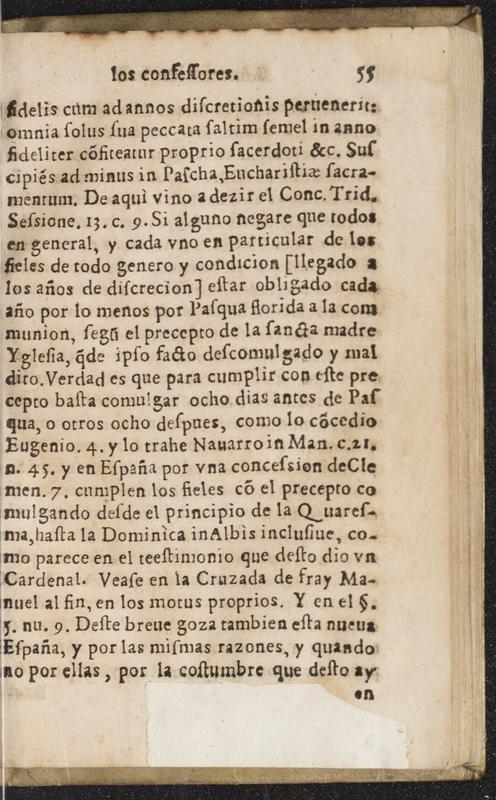 los confeſſores. 55
fidelis cùm ad annos diſcretionis peruenerit:
omnia ſolus ſua peccata ſaltim ſemel in anno
fideliter cõfiteatur proprio ſacerdoti &c. Suſ
cipiẽs ad minus in Paſcha, Euchariſtiæ ſacra-
mentum. De aquì vino a dezir el Conc. Trid.
Seſsione. 13. c. 9. Si alguno negare que todos
en general, y cada vno en particular de los
fieles de todo genero y condicion [llegado a
los años de diſcrecion] eſtar obligado cada
año por lo menos por Paſqua florida a la com
munion, ſegũ el precepto de la ſancta madre
Ygleſia, q̃de ipſo facto deſcomulgado y mal
dito. Verdad es que para cumplir con eſte pre
cepto baſta comulgar ocho dias antes de Paſ
qua, o otros ocho deſpues, como lo cõcedio
Eugenio. 4. y lo trahe Nauarro in Man. c. 21.
n. 45. y en Eſpaña por vna conceſsion de Cle
men. 7. cumplen los fieles cõ el precepto co
mulgando deſde el principio de la Quareſ-
ma, haſta la Dominìca in Albìs incluſiue, co-
mo parece en el teeſtimonio que deſto dio vn
Cardenal. Veaſe en la Cruzada de fray Ma-
nuel al fin, en los motus proprios. Y en el §.
5. nu. 9. Deſte breue goza tambien eſta nueua
Eſpaña, y por las miſmas razones, y quando
no por ellas, por la coſtumbre que deſto ay
en